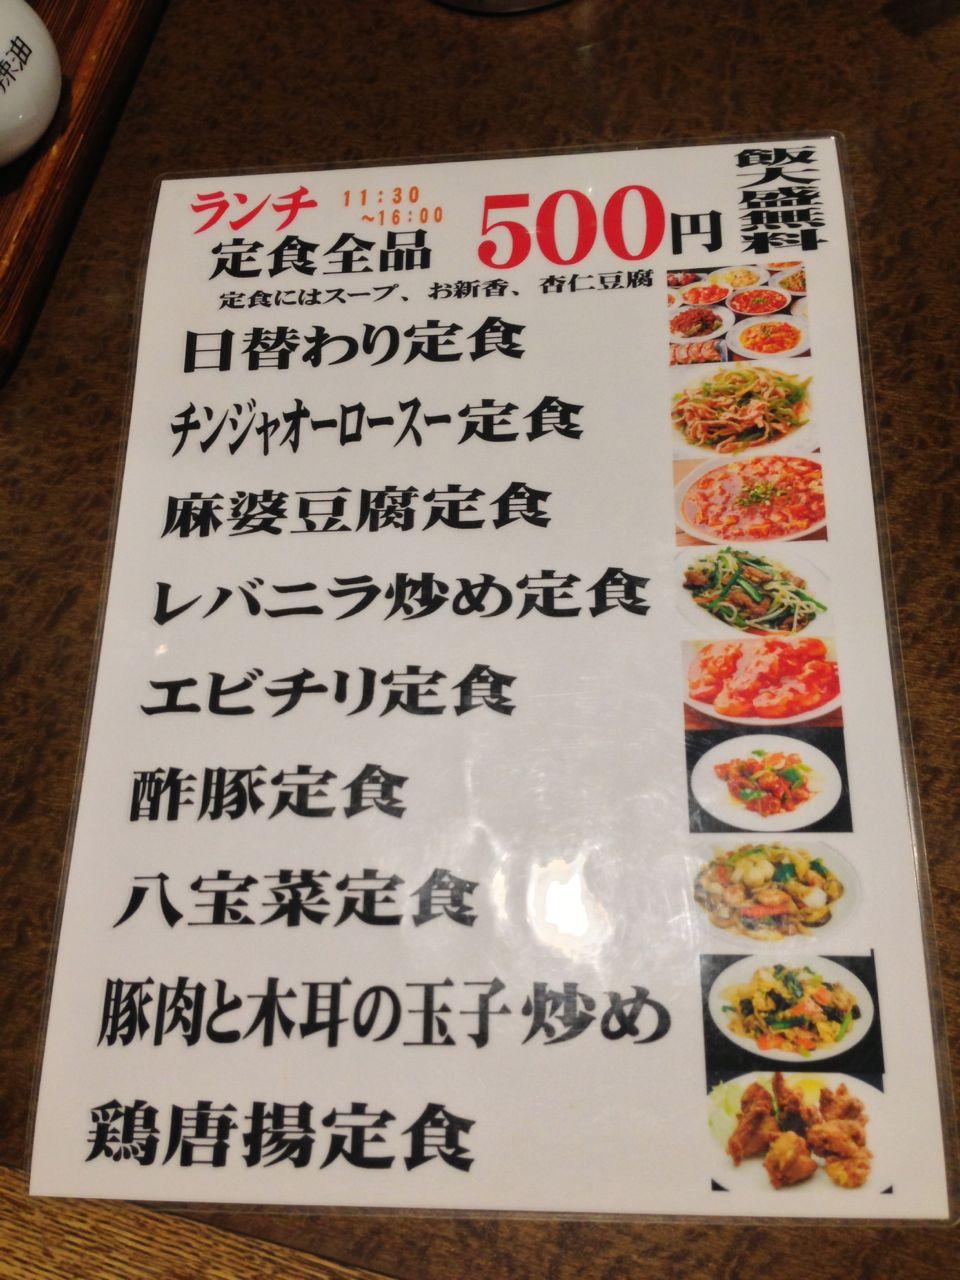 辣油
ランチ 11:30
~16:00
定食全品 500円
飯大盛無料
定食にはスープ、お新香、杏仁豆腐
日替わり定食
チンジャオーロースー定食
麻婆豆腐定食
レバニラ炒め定食
エビチリ定食
酢豚定食
八宝菜定食
豚肉と木耳の玉子炒め
鶏唐揚定食